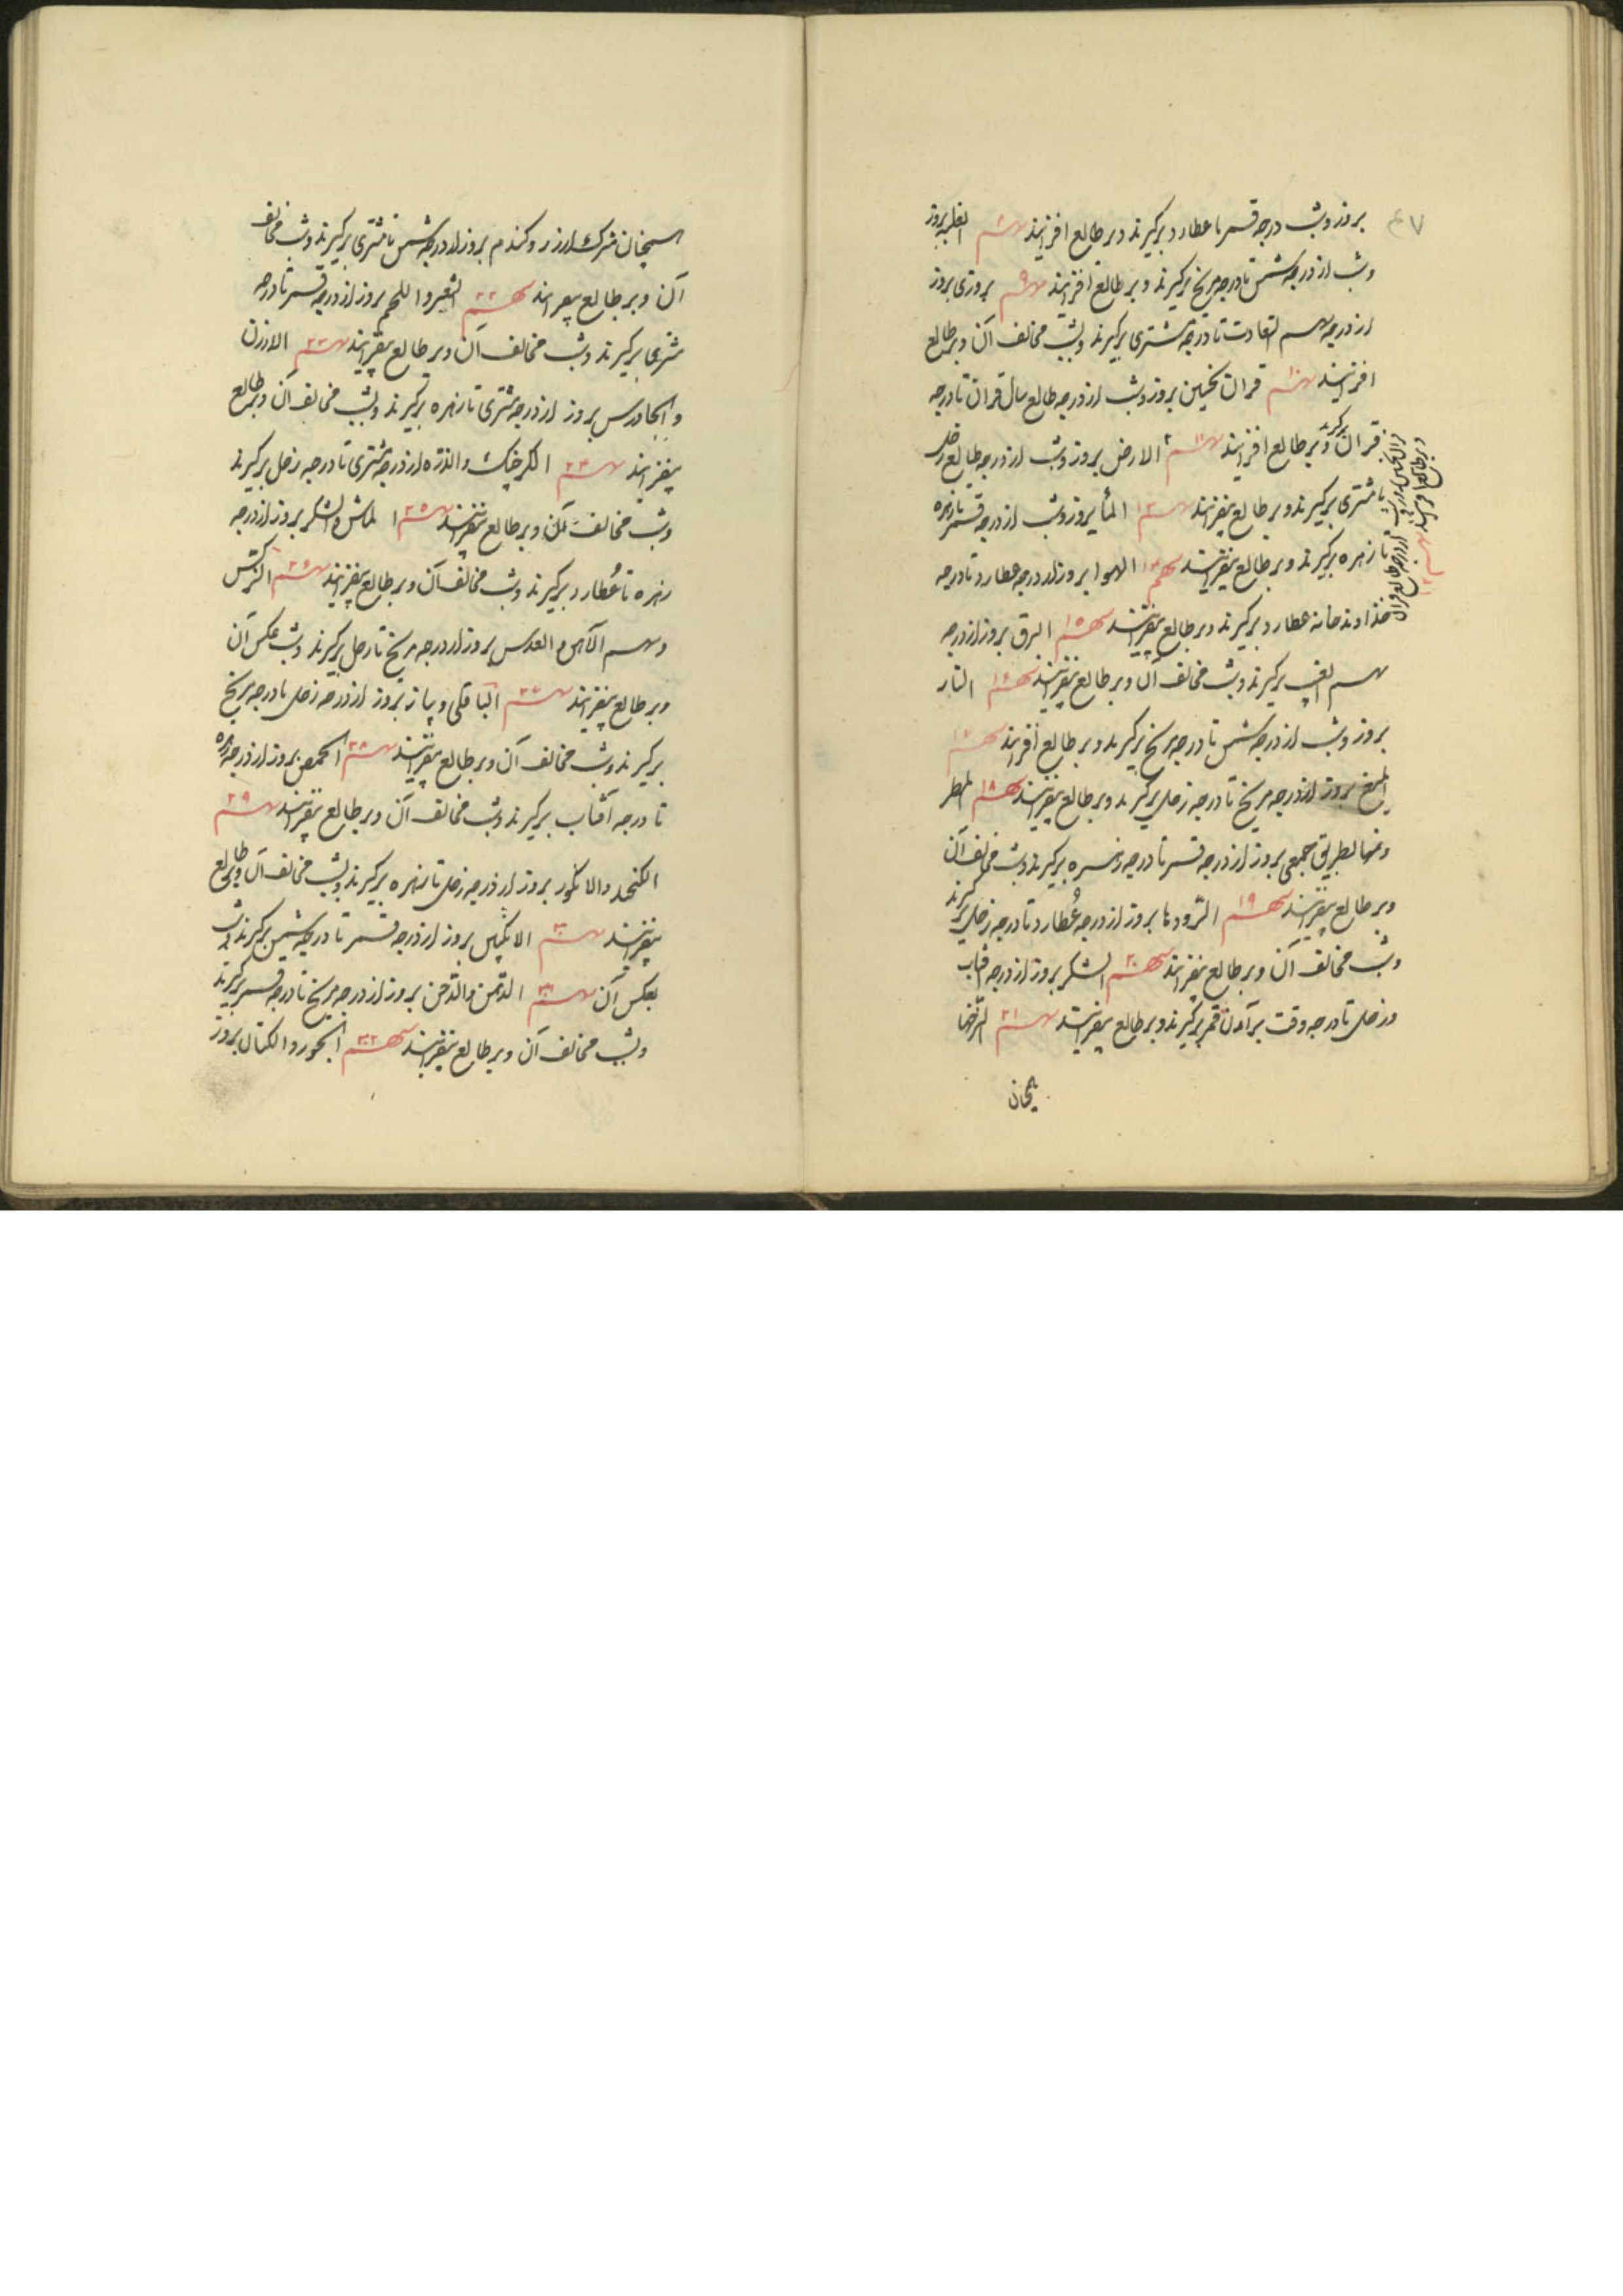 ۴۷
بروز و شب درجه قمر تا عطارد برگیرند و بر طالع افزایند سهم ۸ الغلبه بروز
و شب از درجه شمس تا درجه مریخ برگیرند و بر طالع افزایند سهم ۹ پروزی بروز
از درجه سهم السعادت تا درجه مشتری برگیرند و بشب مخالف آن و بر طالع
افزایند سهم ۱۰ قران نحسین بروز و شب از درجه طالع سال قران تا درجه
قران برگیرند و بر طالع افزایند سهم ۱۱ الارض بروز و شب از درجه طالع زحل
تا مشتری برگیرند و بر طالع بیفزایند سهم ۱۳ الماء بروز و شب از درجه قمر تا زهره
تا زهره برگیرند و بر طالع بیفزایند سهم ۱۴ الهوا بروز از درجه عطارد تا درجه
خداوند خانه عطارد برگیرند و بر طالع بیفزایند سهم ۱۵ البرق بروز از درجه
سهم الغیب برگیرند و بشب مخالف آن و بر طالع بیفزایند سهم ۱۶ النار
بروز و شب از درجه شمس تا درجه مریخ برگیرند و بر طالع افزایند سهم ۱۷
المیغ بروز از درجه مریخ تا درجه زحل برگیرند و بر طالع بیفزایند سهم ۱۸ المطر
و منها بطریق جمعی بروز از درجه قمر تا درجه زهره برگیرند و شب مخالف آن
و بر طالع بیفزایند سهم ۱۹ الرودها بروز از درجه عطارد تا درجه زحل برگیرند
و شب مخالف آن و بر طالع بیفزایند سهم ۲۰ الشکر بروز از درجه آفتاب
و زحل تا درجه وقت برآمدن قمر برگیرند و بر طالع بیفزایند سهم ۲۱ الترخها
آن و بر طالع بیفزایند سهم ۲۲ الشعیر و اللحم بروز از درجه قمر تا درجه
مشتری برگیرند و شب مخالف آن و بر طالع بیفزایند سهم ۲۳ الارزن
و الجاورس بروز از درجه مشتری تا زهره برگیرند و بشب مخالف آن و بر طالع
بیفزایند سهم ۲۴ الکرخک و الذره از درجه مشتری تا درجه زحل برگیرند
و شب مخالف آن و بر طالع بیفزایند سهم ۲۵ الماش و الشکر بروز از درجه
زهره تا عطارد برگیرند و شب مخالف آن و بر طالع بیفزایند سهم ۲۶ الترش
و سهم الآهن و العدس بروز از درجه مریخ تا زحل برگیرند و شب عکس آن
و بر طالع بیفزایند سهم ۲۷ الباقلی و پیاز بروز از درجه زحل تا درجه مریخ
برگیرند و شب مخالف آن و بر طالع بیفزایند سهم ۲۸ الحمص بروز از درجه زهره
تا درجه آفتاب برگیرند و شب مخالف آن و بر طالع بیفزایند سهم ۲۹
الکنجد و الانگور بروز از درجه زحل تا زهره برگیرند و بشب مخالف آن و بر طالع
بیفزایند سهم ۳۰ الانگبین بروز از درجه قمر تا درجه شمس برگیرند و شب
بعکس آن سهم ۳۱ الدهن و الدخن بروز از درجه مریخ تا درجه قمر برگیرند
و بشب مخالف آن و بر طالع بیفزایند سهم ۳۲ الجوز و الکتان بروز